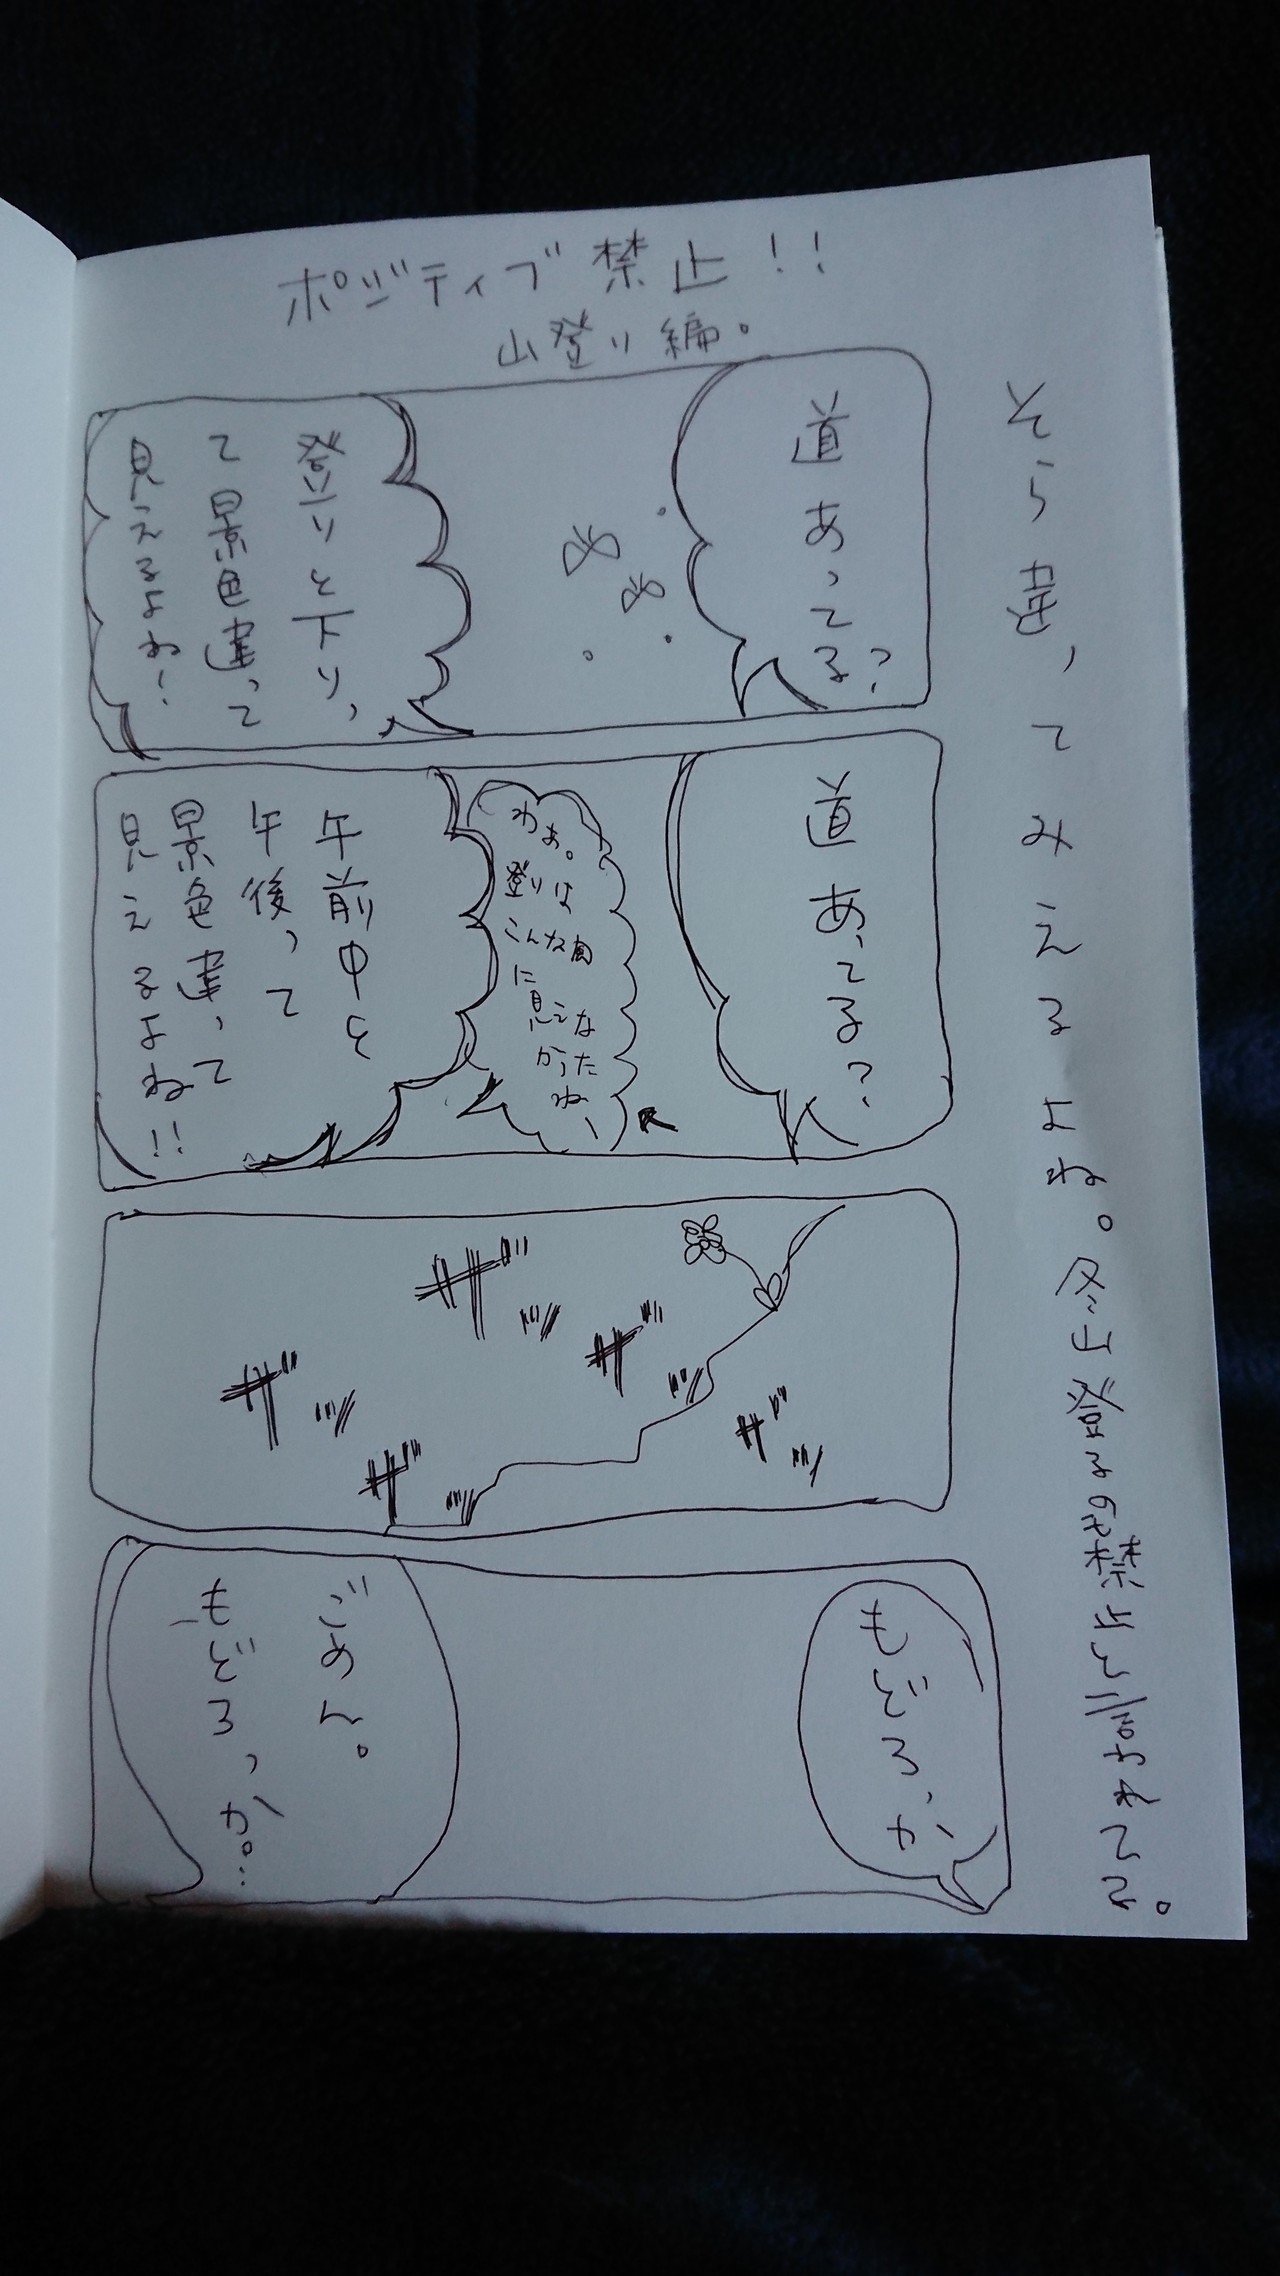 ポジティブ禁止!!
山登り編。
道あってる?
登りと下り、
って景色違って
見えるよね!
道あってる?
わぁ。
登りは
こんな風
に見えな
かったね、
午前中と
午後って
景色違って
見えるよね!!
ザ"
ザ"
ザ"
ザ"
ザ"
もどろっか
ごめん。
もどろっか。…
そら違ってみえるよね。冬山登るの禁止って言われてる。